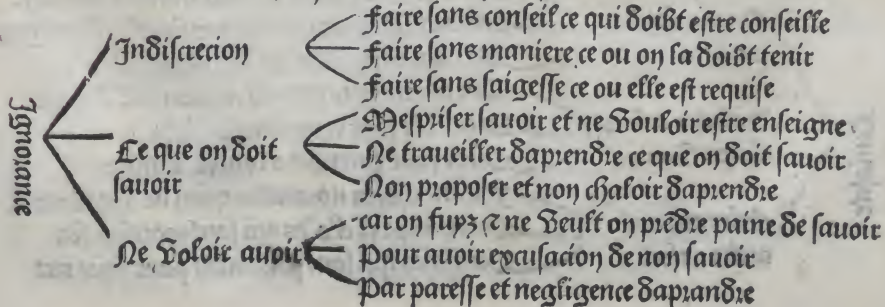 Ignorance
Indiscrecion
Faire sans conseil ce qui doibt estre conseille
Faire sans maniere ce ou on la doibt tenir
Faire sans saigesse ce ou elle est requise
Ce que on doit
sauoir
Mespriser sauoir et ne vouloir estre enseigne
Ne traueiller daprendre ce que on doit sauoir
Non proposer et non chaloir daprendre
Ne voloir auoir
car on fuyz ⁊ ne veult on prẽdre paine de sauoir
Pour auoir excusacion de non sauoir
Par paresse et negligence daprandre